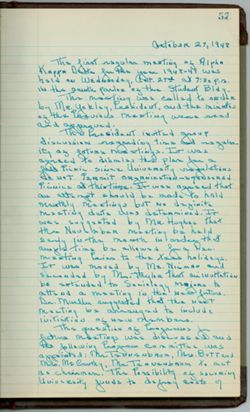 57
October 27, 1948
The first regular meeting of Alpha
Kappa Delta for the year 1948-49 was
held on Wednesday, Oct. 27th at 7:30 P.M.
in the south parlor of the Student Bldg.
This meeting was called to order
by Mr. Yokley, President, and the minutes
of the previous meeting were read
and approved.
The President invited group
discussion regarding time and regular-
ity of future meetings. It was
agreed to dismiss the plan for a
picnic since University regulations
do not permit organization-sponsored
picnics at this time. It was agreed that
an attempt should be made to hold
monthly meetings but no definite
meeting date was determined. It
was suggested by Mr. Hughes that
the November meeting be held
early in the month in order that
ample time be allowed for a Dec.
meeting prior to the Xmas holidays.
It was moved by Mr. Neumar and
seconded by Mr. that an invitation
be extended to Sociology majors to
attend a meeting in the near future.
Dr. Mueller suggested that the next
meeting be arranged to include
initiation of new members.
The question of programs for
future meetings was discussed and
the following Program Committee was
appointed: Mr. Teawssbaum, Mrs. Bott and
Mrs. McCarthy, Mr. to act
as Chairman. The possibility of securing
University funds to defray costs of